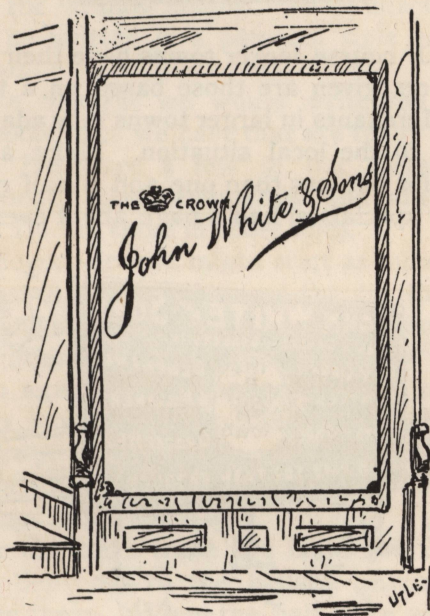 THE CROWN
John White & Sons
UTLE-